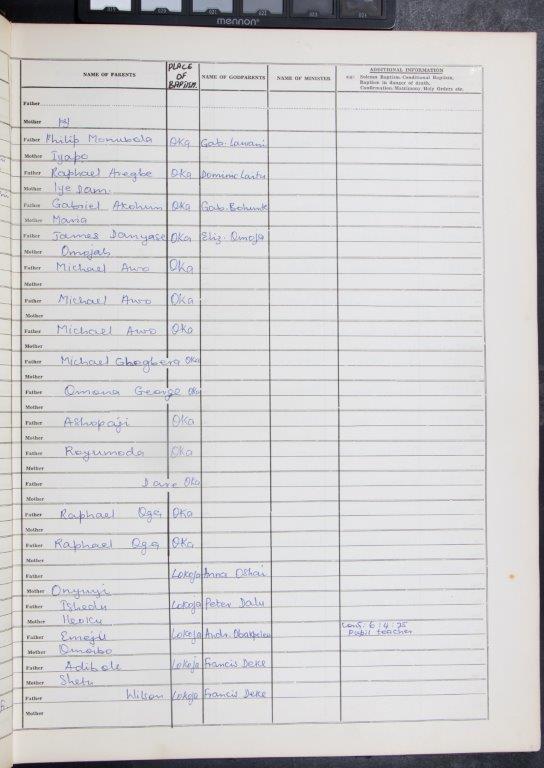 mennon
NAME OF PARENTS PLACE OF BAPTISM. NAME OF GODPARENTS NAME OF MINISTER ADDITIONAL INFORMATION
eg: Solemn Baptism, Conditional Baptism,
Baptism in danger of death,
Confirmation/Matrimony/Holy Orders etc.
Father
Mother
Father Philip Monubola OKa Gab. Lawani
Mother Iyapo
Father Raphael Aregbe OKa Dominic
Mother Iye Dam
Father Gabriel Akohun OKa Gab.
Mother Maria
Father James Danyase OKa Eliz. Omoja
Mother Omojah
Father Michael Awo OKa
Mother
Father Michael Awo OKa
Mother
Father Michael Awo OKa
Mother
Father Michael Gbagbera OKa
Mother
Father Omona George OKa
Mother
Father Ashopaji OKa
Mother
Father Rayumoda OKa
Mother
Father Dare OKa
Mother
Father Raphael Oga OKa
Mother
Father Raphael Oga OKa
Mother
Father Lokoja Anna Oshai
Mother Onyuyi
Father Ishedu Lokoja Peter Dalu
Mother
Father Emeje Lokoja Andr. Conf. 6:4:25
Pupil teacher
Mother Omaibo
Father Adibole Lokoja Francis Deke
Mother Shetu
Father Wilson Lokoja Francis Deke
Mother